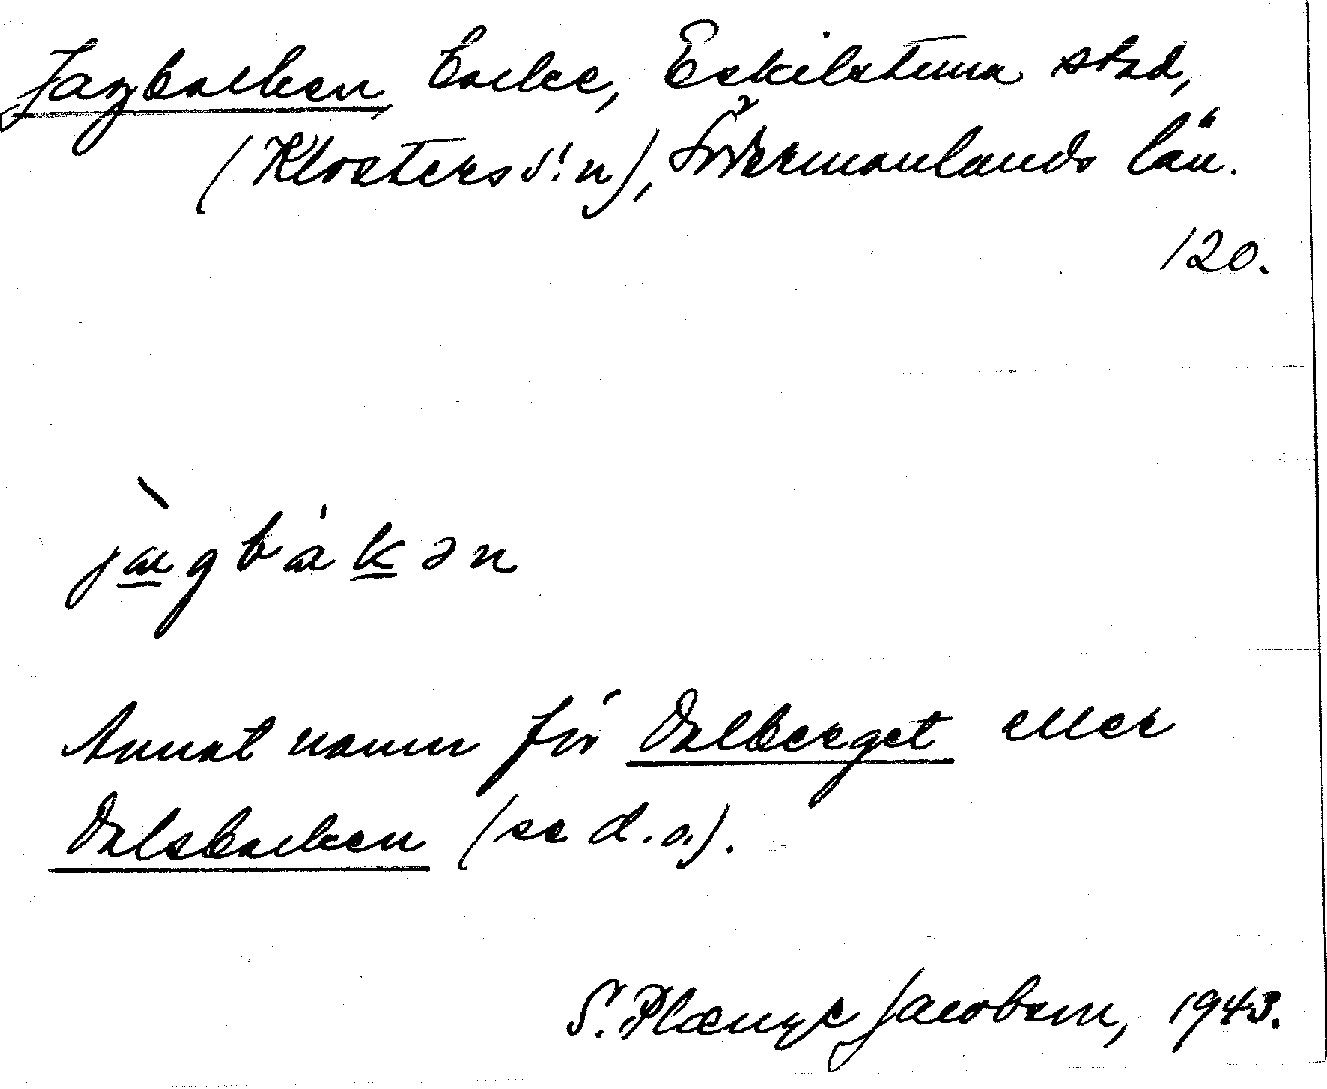 Jagbacken, backe, Eskilstuna stad,
(Klosters s:n), Södermanlands län.
120.
jàgbàkən
Annat namn för Dalberget eller
Dalsbacken (se d.o.).
S. Plænge Jacobson, 1943.